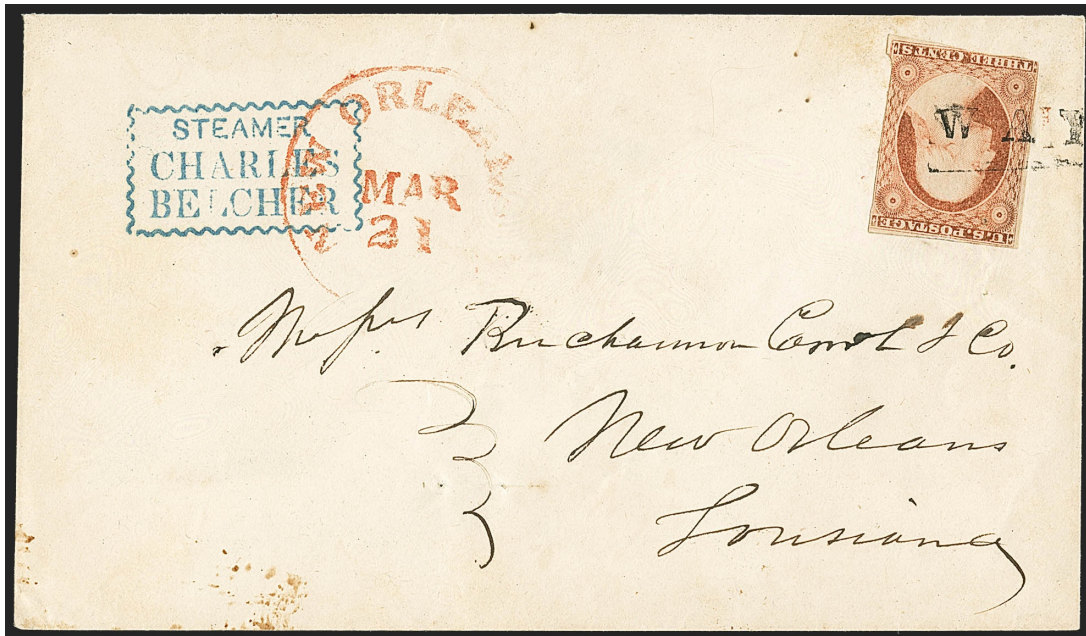 STEAMER
CHARLES
BELCHER
NEW ORLEANS
MAR
21
THREE CENTS
U.S. POSTAGE
WAY
Messrs Buchannon Carrol & Co.
New Orleans
Louisiana